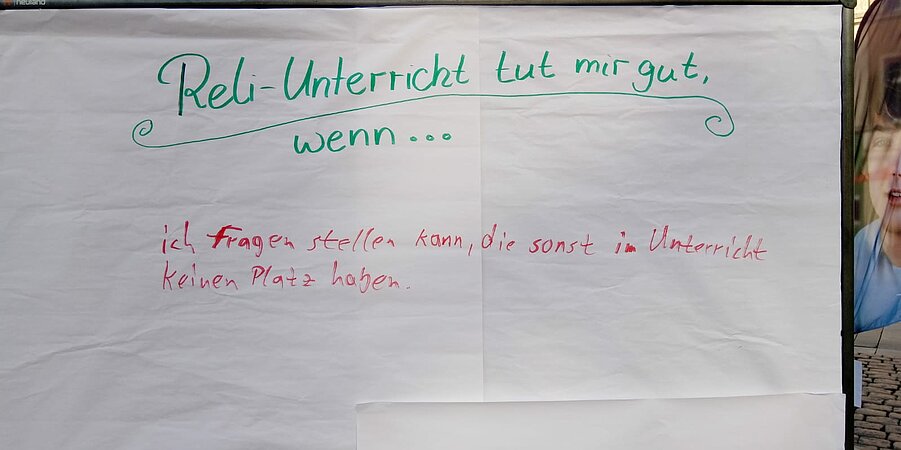 neuland
Reli-Unterricht tut mir gut,
wenn...
ich Fragen stellen kann, die sonst im Unterricht
keinen Platz haben.